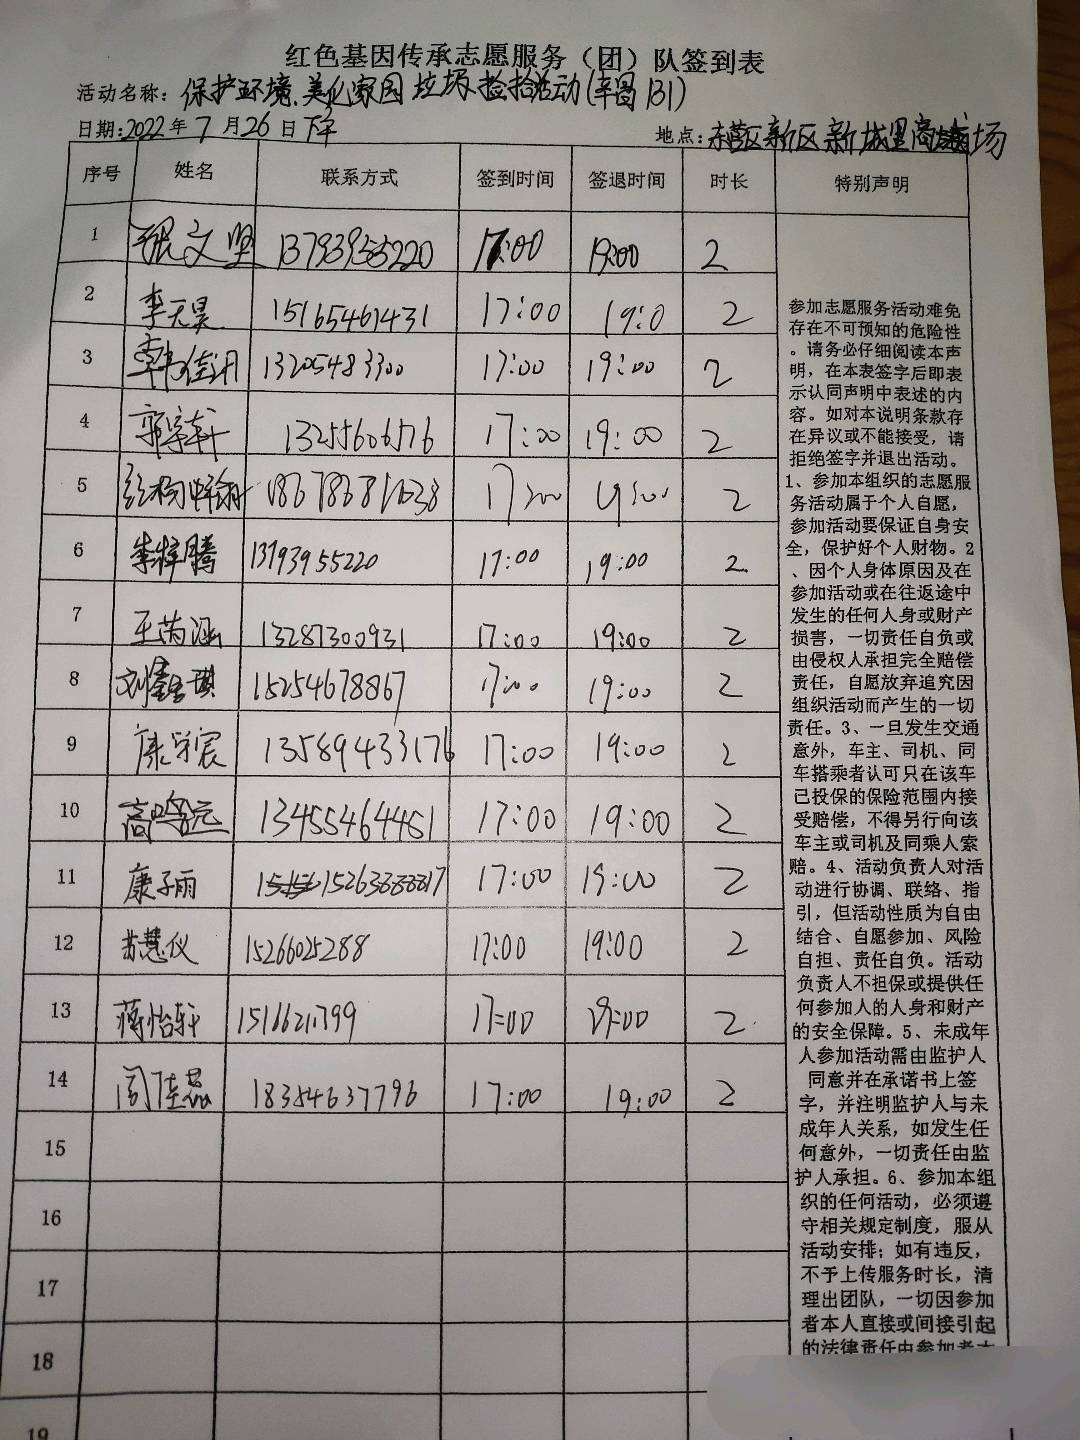 红色基因传承志愿服务（团）队签到表
活动名称：保护环境、美化家园 垃圾捡拾活动(辛昌131)
日期:2022年7月26日下午 地点:东营区新区新城里商城广场
序号 姓名 联系方式 签到时间 签退时间 时长 特别声明
1 张文坚 13793955220 17:00 19:00 2
2 李天昊 15165461431 17:00 19:0 2
3 韩佳汛 13205483300 17:00 19:00 2
4 郭宇轩 13255606576 17:00 19:00 2
5 18678681638 17:00 19:00 2
6 李梓腾 13793955220 17:00 19:00 2
7 王芮涵 13287300931 17:00 19:00 2
8 15254678867 17:00 19:00 2
9 康宇宸 13589433176 17:00 19:00 2
10 高鸣远 13455464451 17:00 19:00 2
11 康子雨 15263888817 17:00 19:00 2
12 苏慧仪 15266025288 17:00 19:00 2
13 蒋怡轩 17:00 19:00 2
14 周佳磊 18354637796 17:00 19:00 2
15
16
17
18
19
参加志愿服务活动难免
存在不可预知的危险性
。请务必仔细阅读本声
明，在本表签字后即表
示认同声明中表述的内
容。如对本说明条款存
在异议或不能接受，请
拒绝签字并退出活动。
1、参加本组织的志愿服
务活动属于个人自愿，
参加活动要保证自身安
全，保护好个人财物。2
、因个人身体原因及在
参加活动或在往返途中
发生的任何人身或财产
损害，一切责任自负或
由侵权人承担完全赔偿
责任，自愿放弃追究因
组织活动而产生的一切
责任。3、一旦发生交通
意外，车主、司机、同
车搭乘者认可只在该车
已投保的保险范围内接
受赔偿，不得另行向该
车主或司机及同乘人索
赔。4、活动负责人对活
动进行协调、联络、指
引，但活动性质为自由
结合、自愿参加、风险
自担、责任自负。活动
负责人不担保或提供任
何参加人的人身和财产
的安全保障。5、未成年
人参加活动需由监护人
同意并在承诺书上签
字，并注明监护人与未
成年人关系，如发生任
何意外，一切责任由监
护人承担。6、参加本组
织的任何活动，必须遵
守相关规定制度，服从
活动安排；如有违反，
不予上传服务时长，清
理出团队，一切因参加
者本人直接或间接引起
的法律责任由参加者本